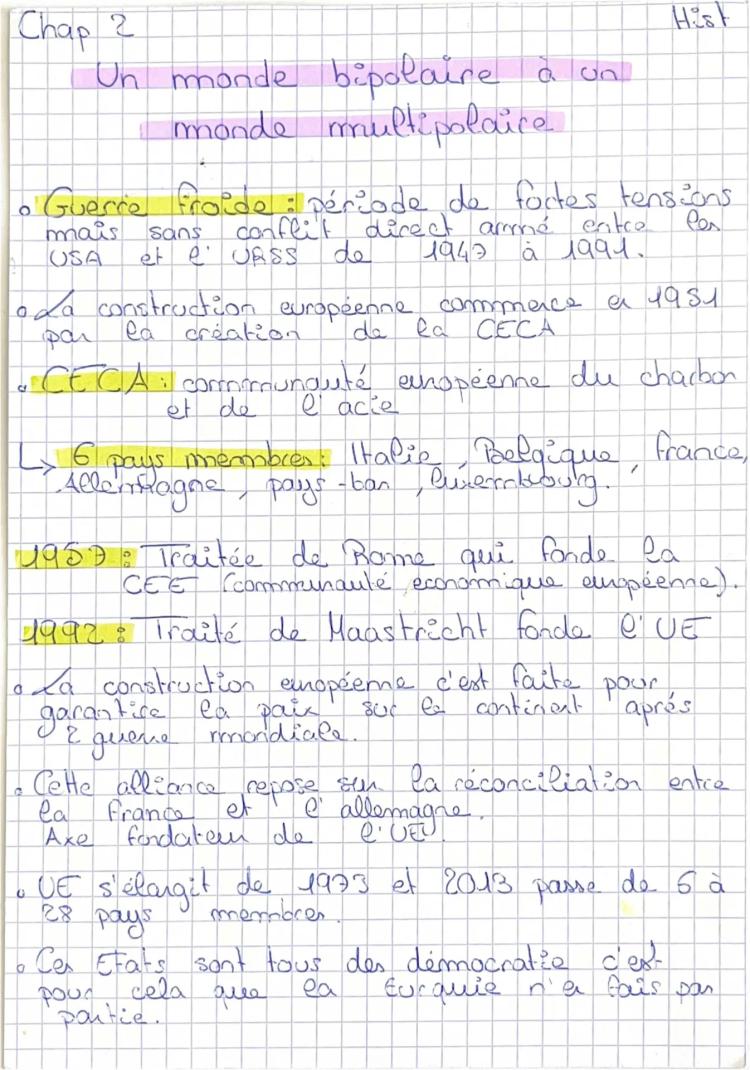 Chap 2
Hist
Un monde bipolaire à un
monde multipolaire
Guerre froide : période de fortes tensions
mais sans conflit direct armé entre les
USA et l'URSS de 1947 à 1991.
La construction européenne commence en 1951
par la création de la CECA
CECA : communauté européenne du charbon
et de l'acie
↳ 6 pays membres : Italie, Belgique, France,
Allemagne, pays-bas, Luxembourg.
1957 : Traitée de Rome qui fonde la
CEE (communauté économique européenne).
1992 : Traité de Maastricht fonde l'UE
La construction européenne c'est faite pour
garantire la paix sur le continent aprés
2 guerre mondiale.
Cette alliance repose sur la réconciliation entre
la France et l'allemagne.
Axe fondateur de l'UE.
UE s'élargit de 1973 et 2013 passe de 6 à
28 pays membres.
Ces Etats sont tous des démocratie c'est
pour cela que la turquie n'en fais pas
partie.